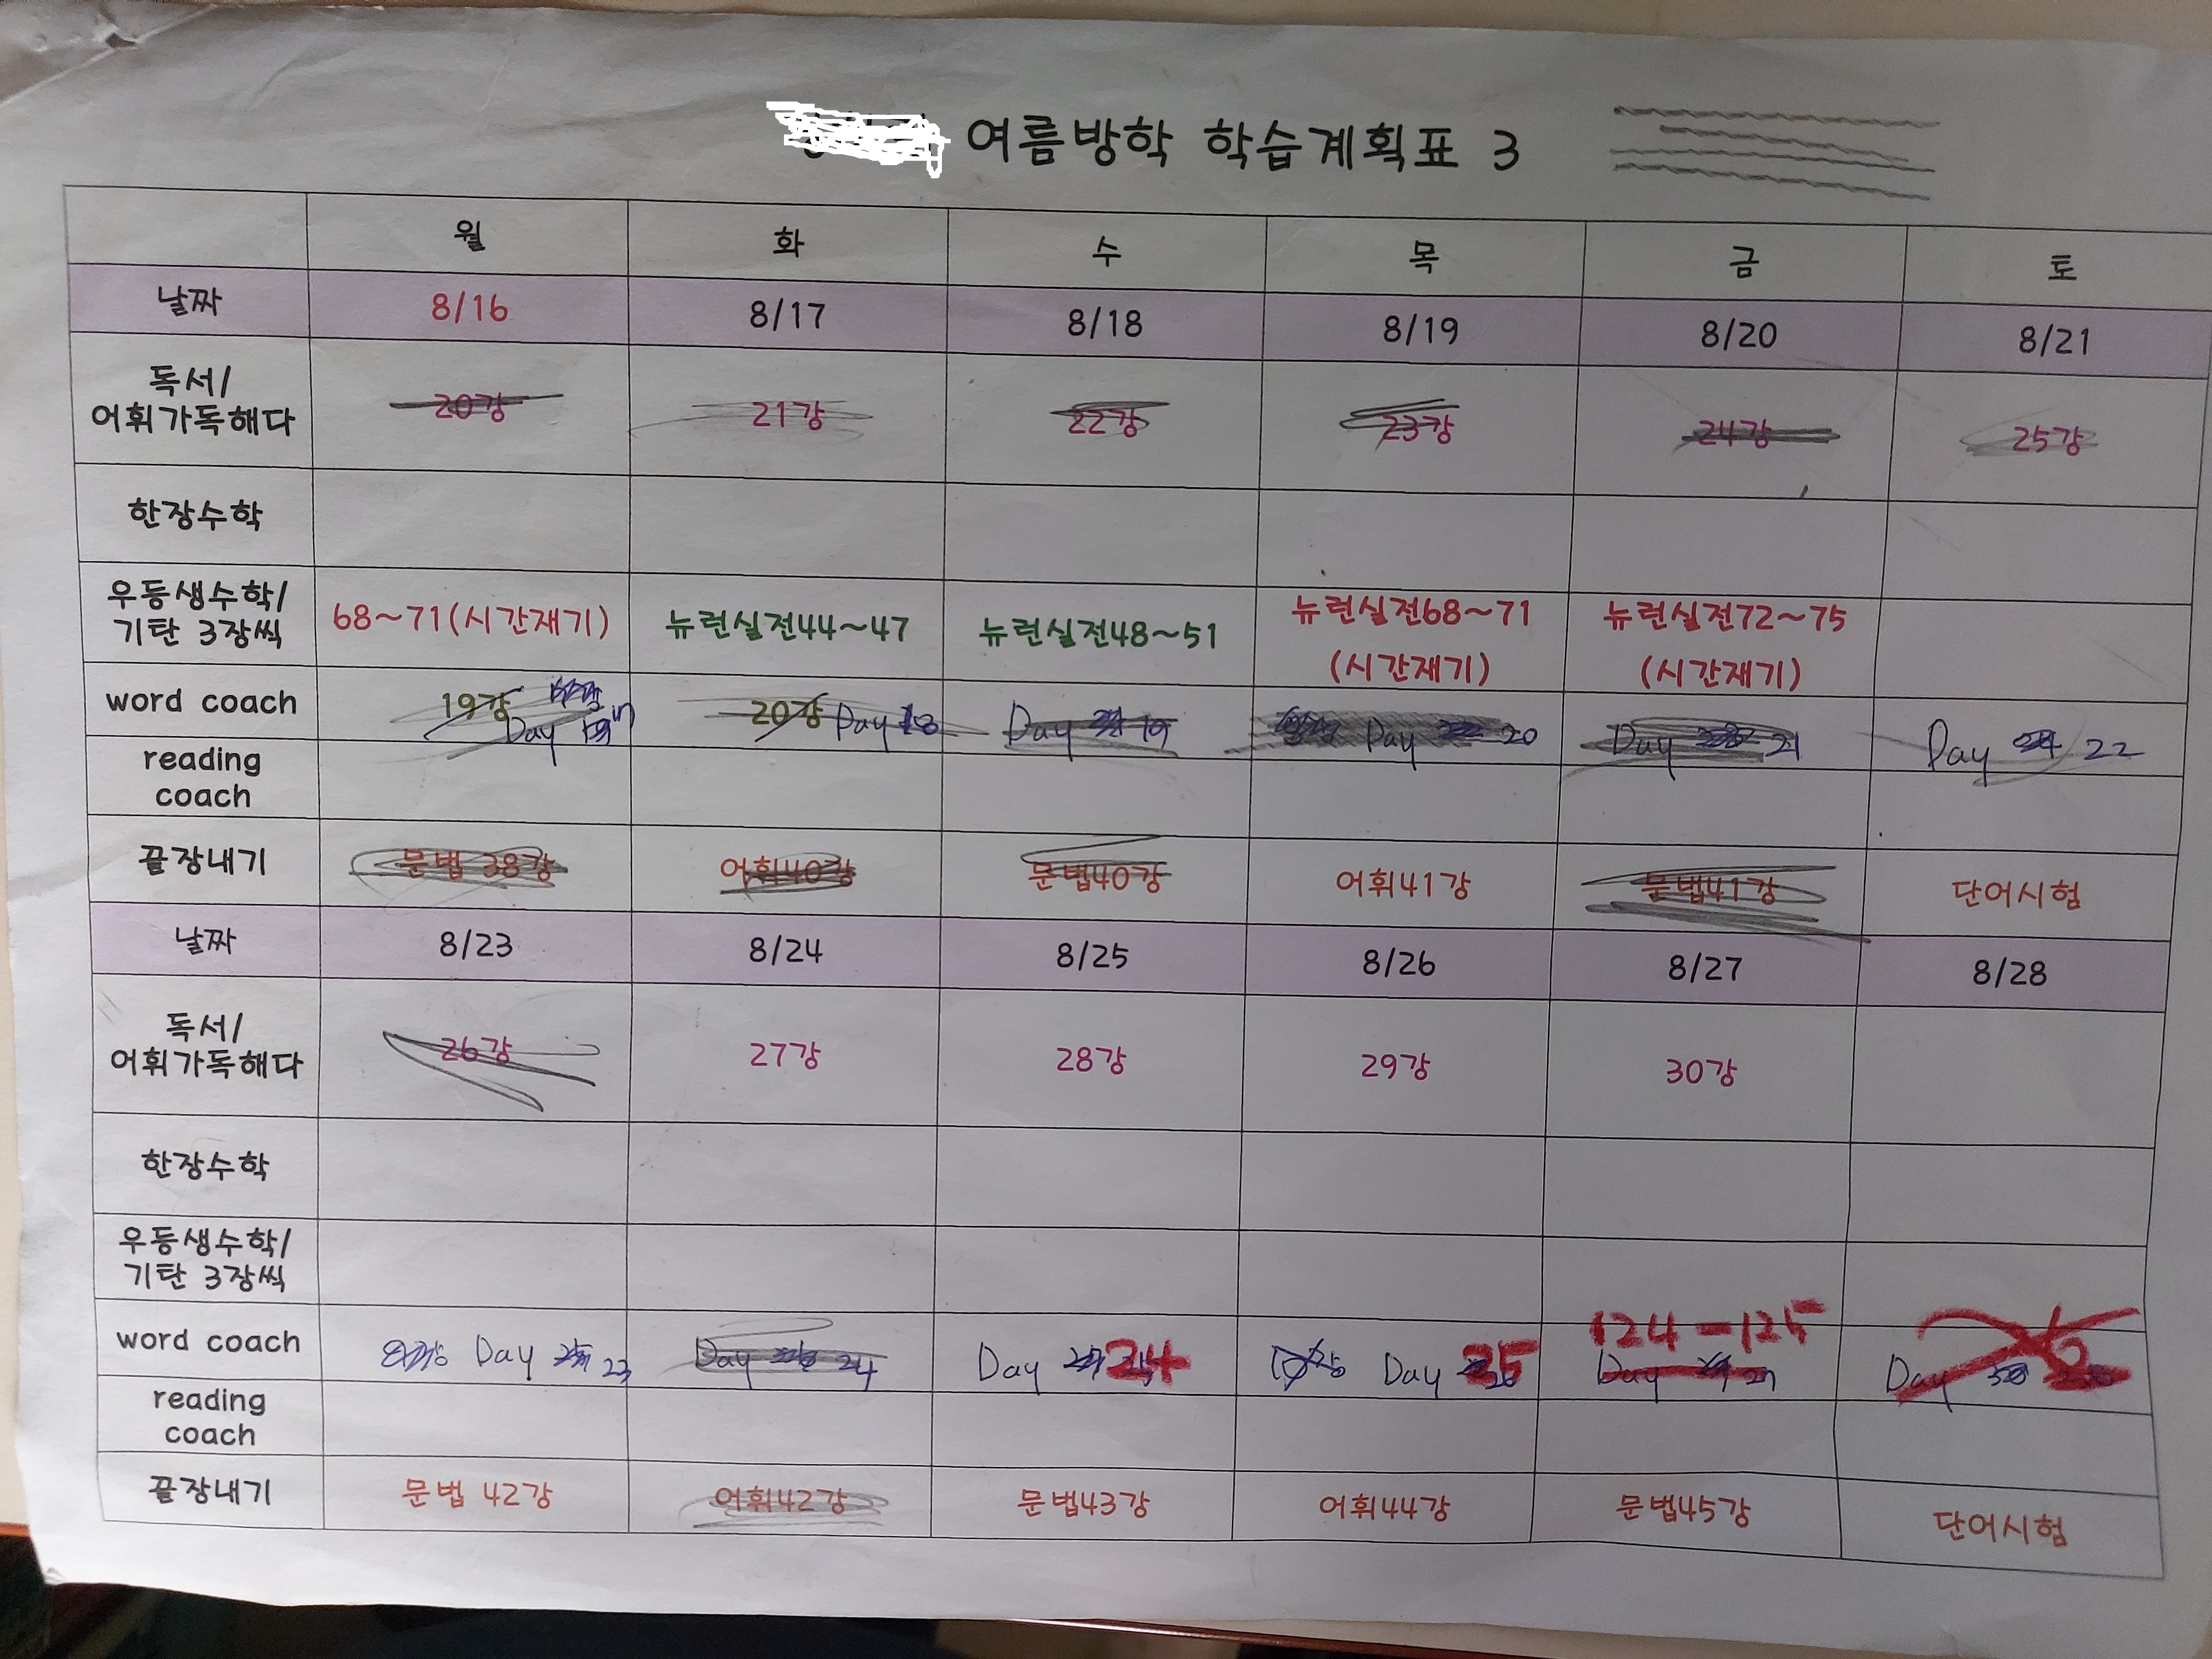 여름방학 학습계획표 3
월 화 수 목 금 토
날짜 8/16 8/17 8/18 8/19 8/20 8/21
독서/
어휘가독해다 20강 21강 22강 23강 24강 25강
한장수학
우등생수학/
기탄 3장씩 68~71(시간재기) 뉴런실전44~47 뉴런실전48~51 뉴런실전68~71 뉴런실전72~75
(시간재기) (시간재기)
word coach 19강 20강
Day Day 18 Day 19 Day 20 Day 21 Day 22
reading
coach
끝장내기 문법 38강 어휘40강 문법40강 어휘41강 문법41강 단어시험
날짜 8/23 8/24 8/25 8/26 8/27 8/28
독서/
어휘가독해다 26강 27강 28강 29강 30강
한장수학
우등생수학/
기탄 3장씩
124-125
word coach Day 23 Day 24 Day 24 Day 25 Day Day
reading
coach
끝장내기 문법 42강 어휘42강 문법43강 어휘44강 문법45강 단어시험